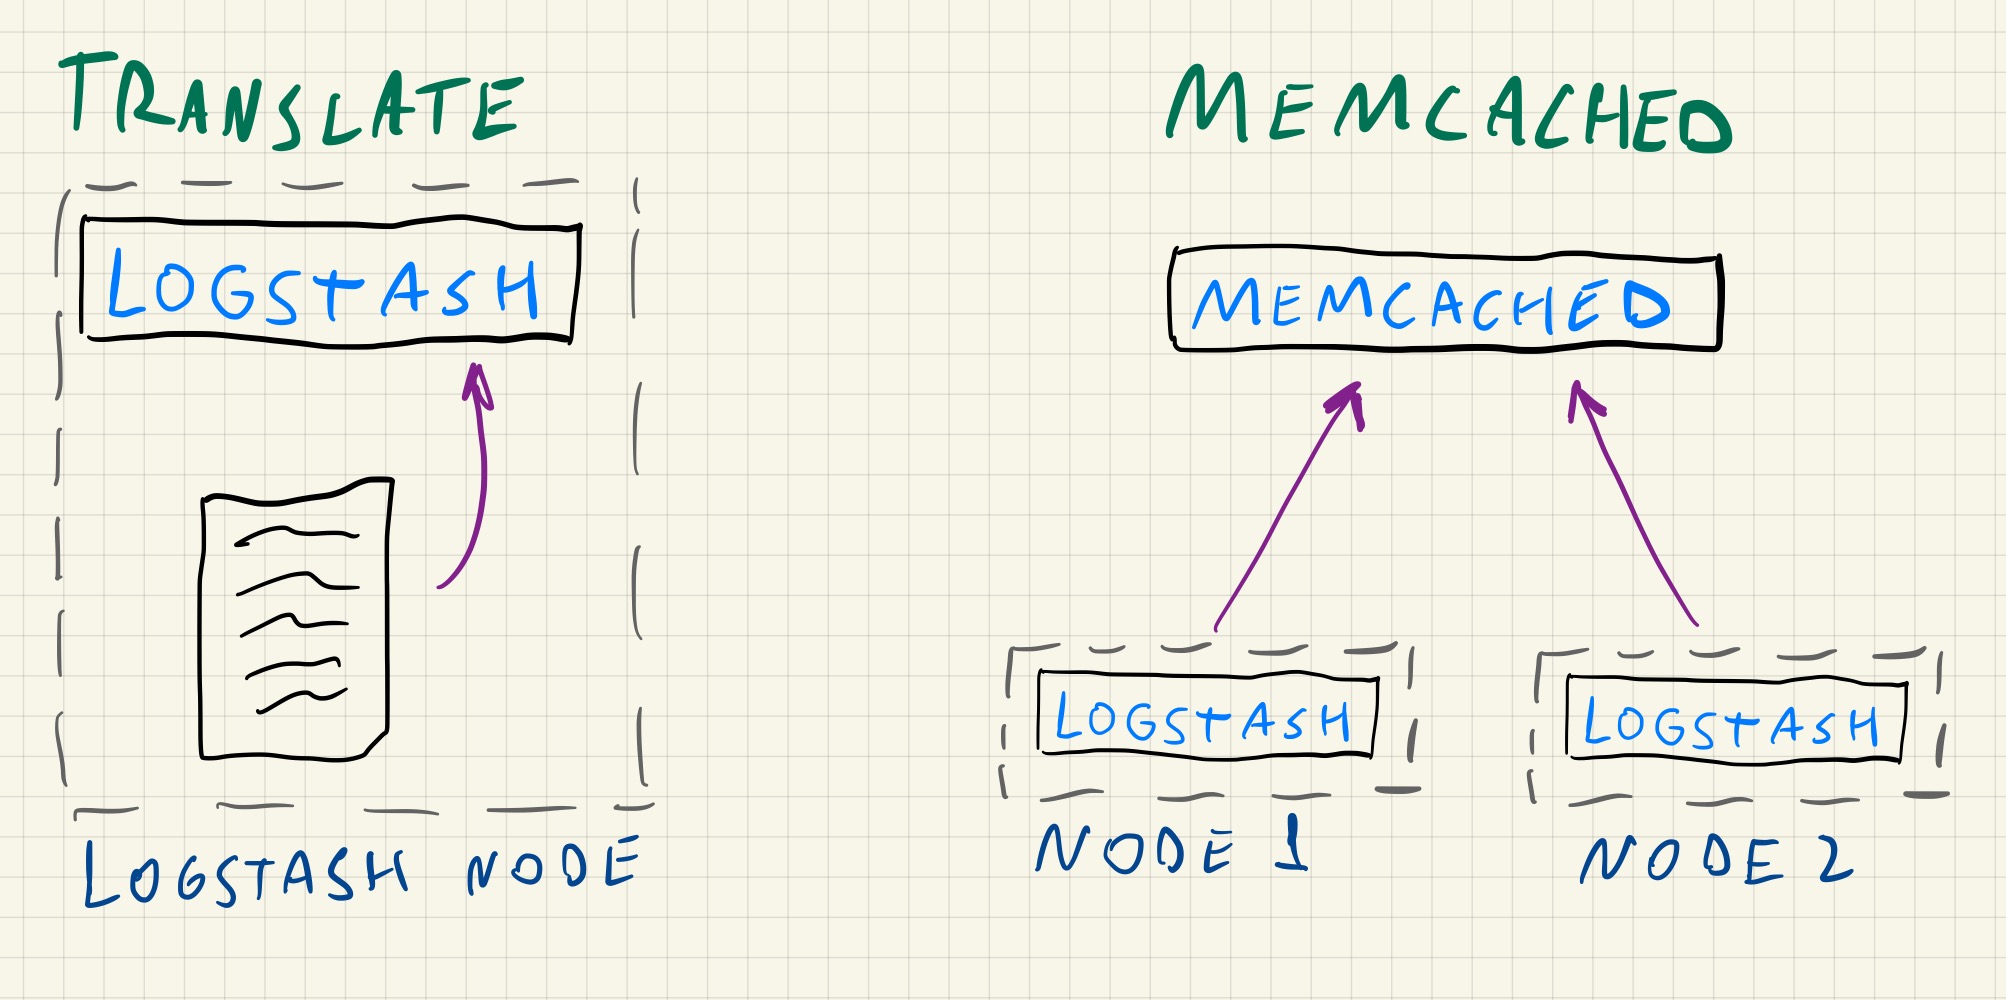 TRANSLATE
LOGSTASH
LOGSTASH NODE
MEMCACHED
MEMCACHED
LOGSTASH
LOGSTASH
NODE 1
NODE 2